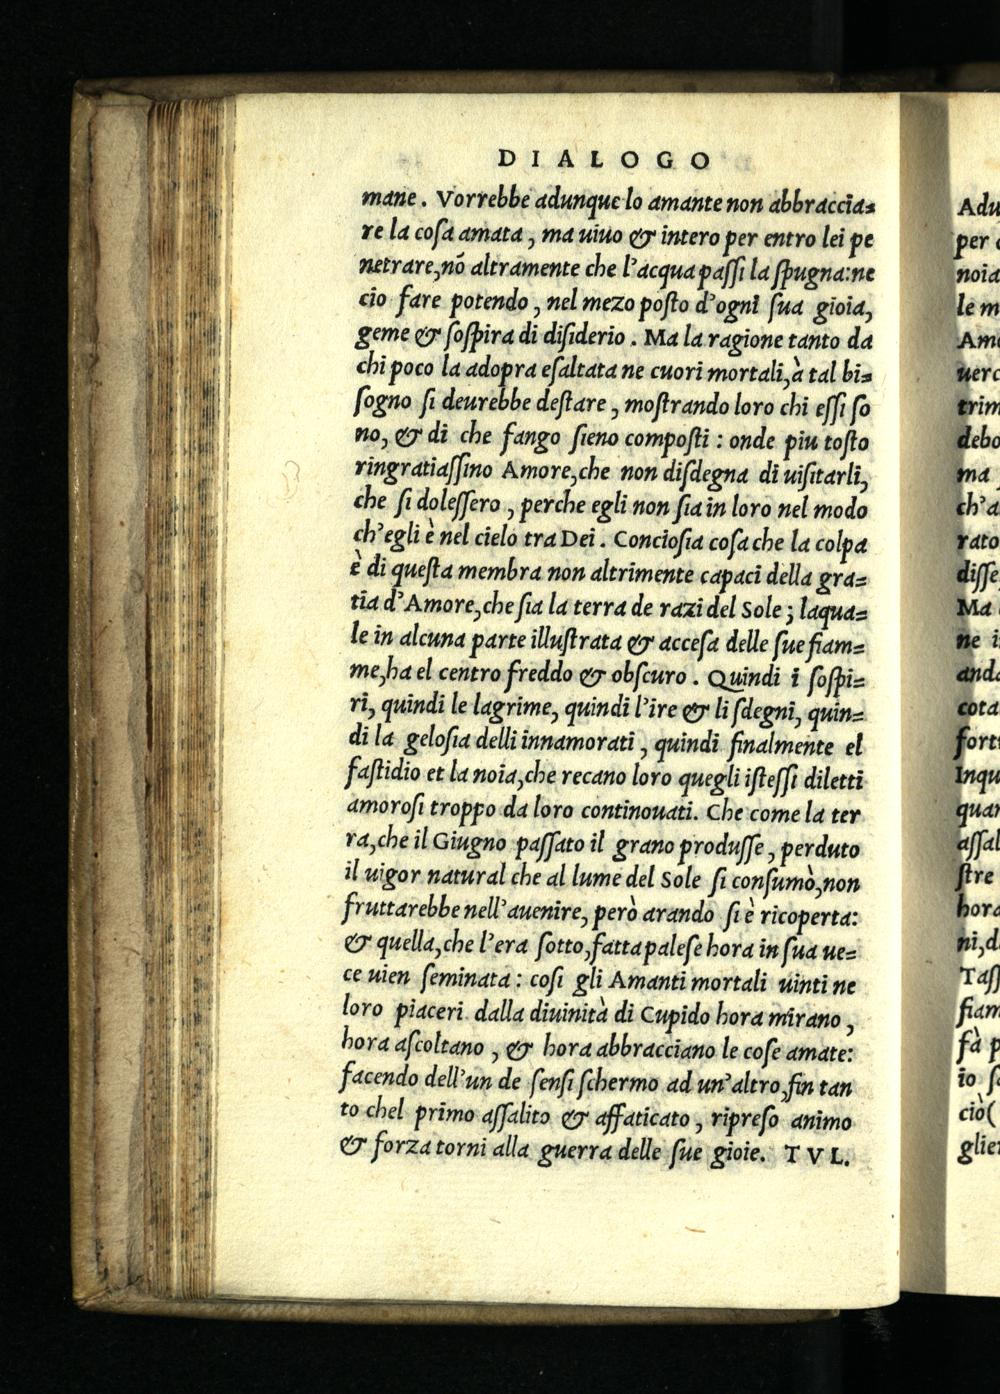 DIALOGO
mane. Vorrebbe adunque lo amante non abbraccia=
re la coſa amata, ma uiuo & intero per entro lei pe
netrare, nõ altramente che l'acqua paſſi la ſpugna: ne
cio fare potendo, nel mezo poſto d'ogni ſua gioia,
geme & ſoſpira di diſiderio. Ma la ragione tanto da
chi poco la adopra eſaltata ne cuori mortali, à tal bi=
ſogno ſi deurebbe deſtare, moſtrando loro chi eſſi ſo
no, & di che fango ſieno compoſti: onde piu toſto
ringratiaſſino Amore, che non diſdegna di uiſitarli,
che ſi doleſſero, perche egli non ſia in loro nel modo
ch'egli è nel cielo tra Dei. Concioſia coſa che la colpa
è di queſta membra non altrimente capaci della gra=
tia d'Amore, che ſia la terra de razi del Sole; laqua=
le in alcuna parte illuſtrata & acceſa delle ſue fiam=
me, ha el centro freddo & obſcuro. Quindi i ſoſpi=
ri, quindi le lagrime, quindi l'ire & li ſdegni, quin=
di la geloſia delli innamorati, quindi finalmente el
faſtidio et la noia, che recano loro quegli iſteſſi diletti
amoroſi troppo da loro continouati. Che come la ter
ra, che il Giugno paſſato il grano produſſe, perduto
il uigor natural che al lume del Sole ſi conſumò, non
fruttarebbe nell'auenire, però arando ſi è ricoperta:
& quella, che l'era ſotto, fatta paleſe hora in ſua ue=
ce uien ſeminata: coſi gli Amanti mortali uinti ne
loro piaceri dalla diuinità di Cupido hora mirano,
hora aſcoltano, & hora abbracciano le coſe amate:
facendo dell'un de ſenſi ſchermo ad un'altro, fin tan
to chel primo aſſalito & affaticato, ripreſo animo
& forza torni alla guerra delle ſue gioie. TVL.
Adu
per
noia
le m
Amo
uerc
trim
debo
ma
ch'a
rato
diſſe
Ma
ne i
anda
cota
fort
Inqu
quan
aſſal
ſtre
hora
ni, d
Taſſ
fiam
fà p
io ſ
ciò(
glier